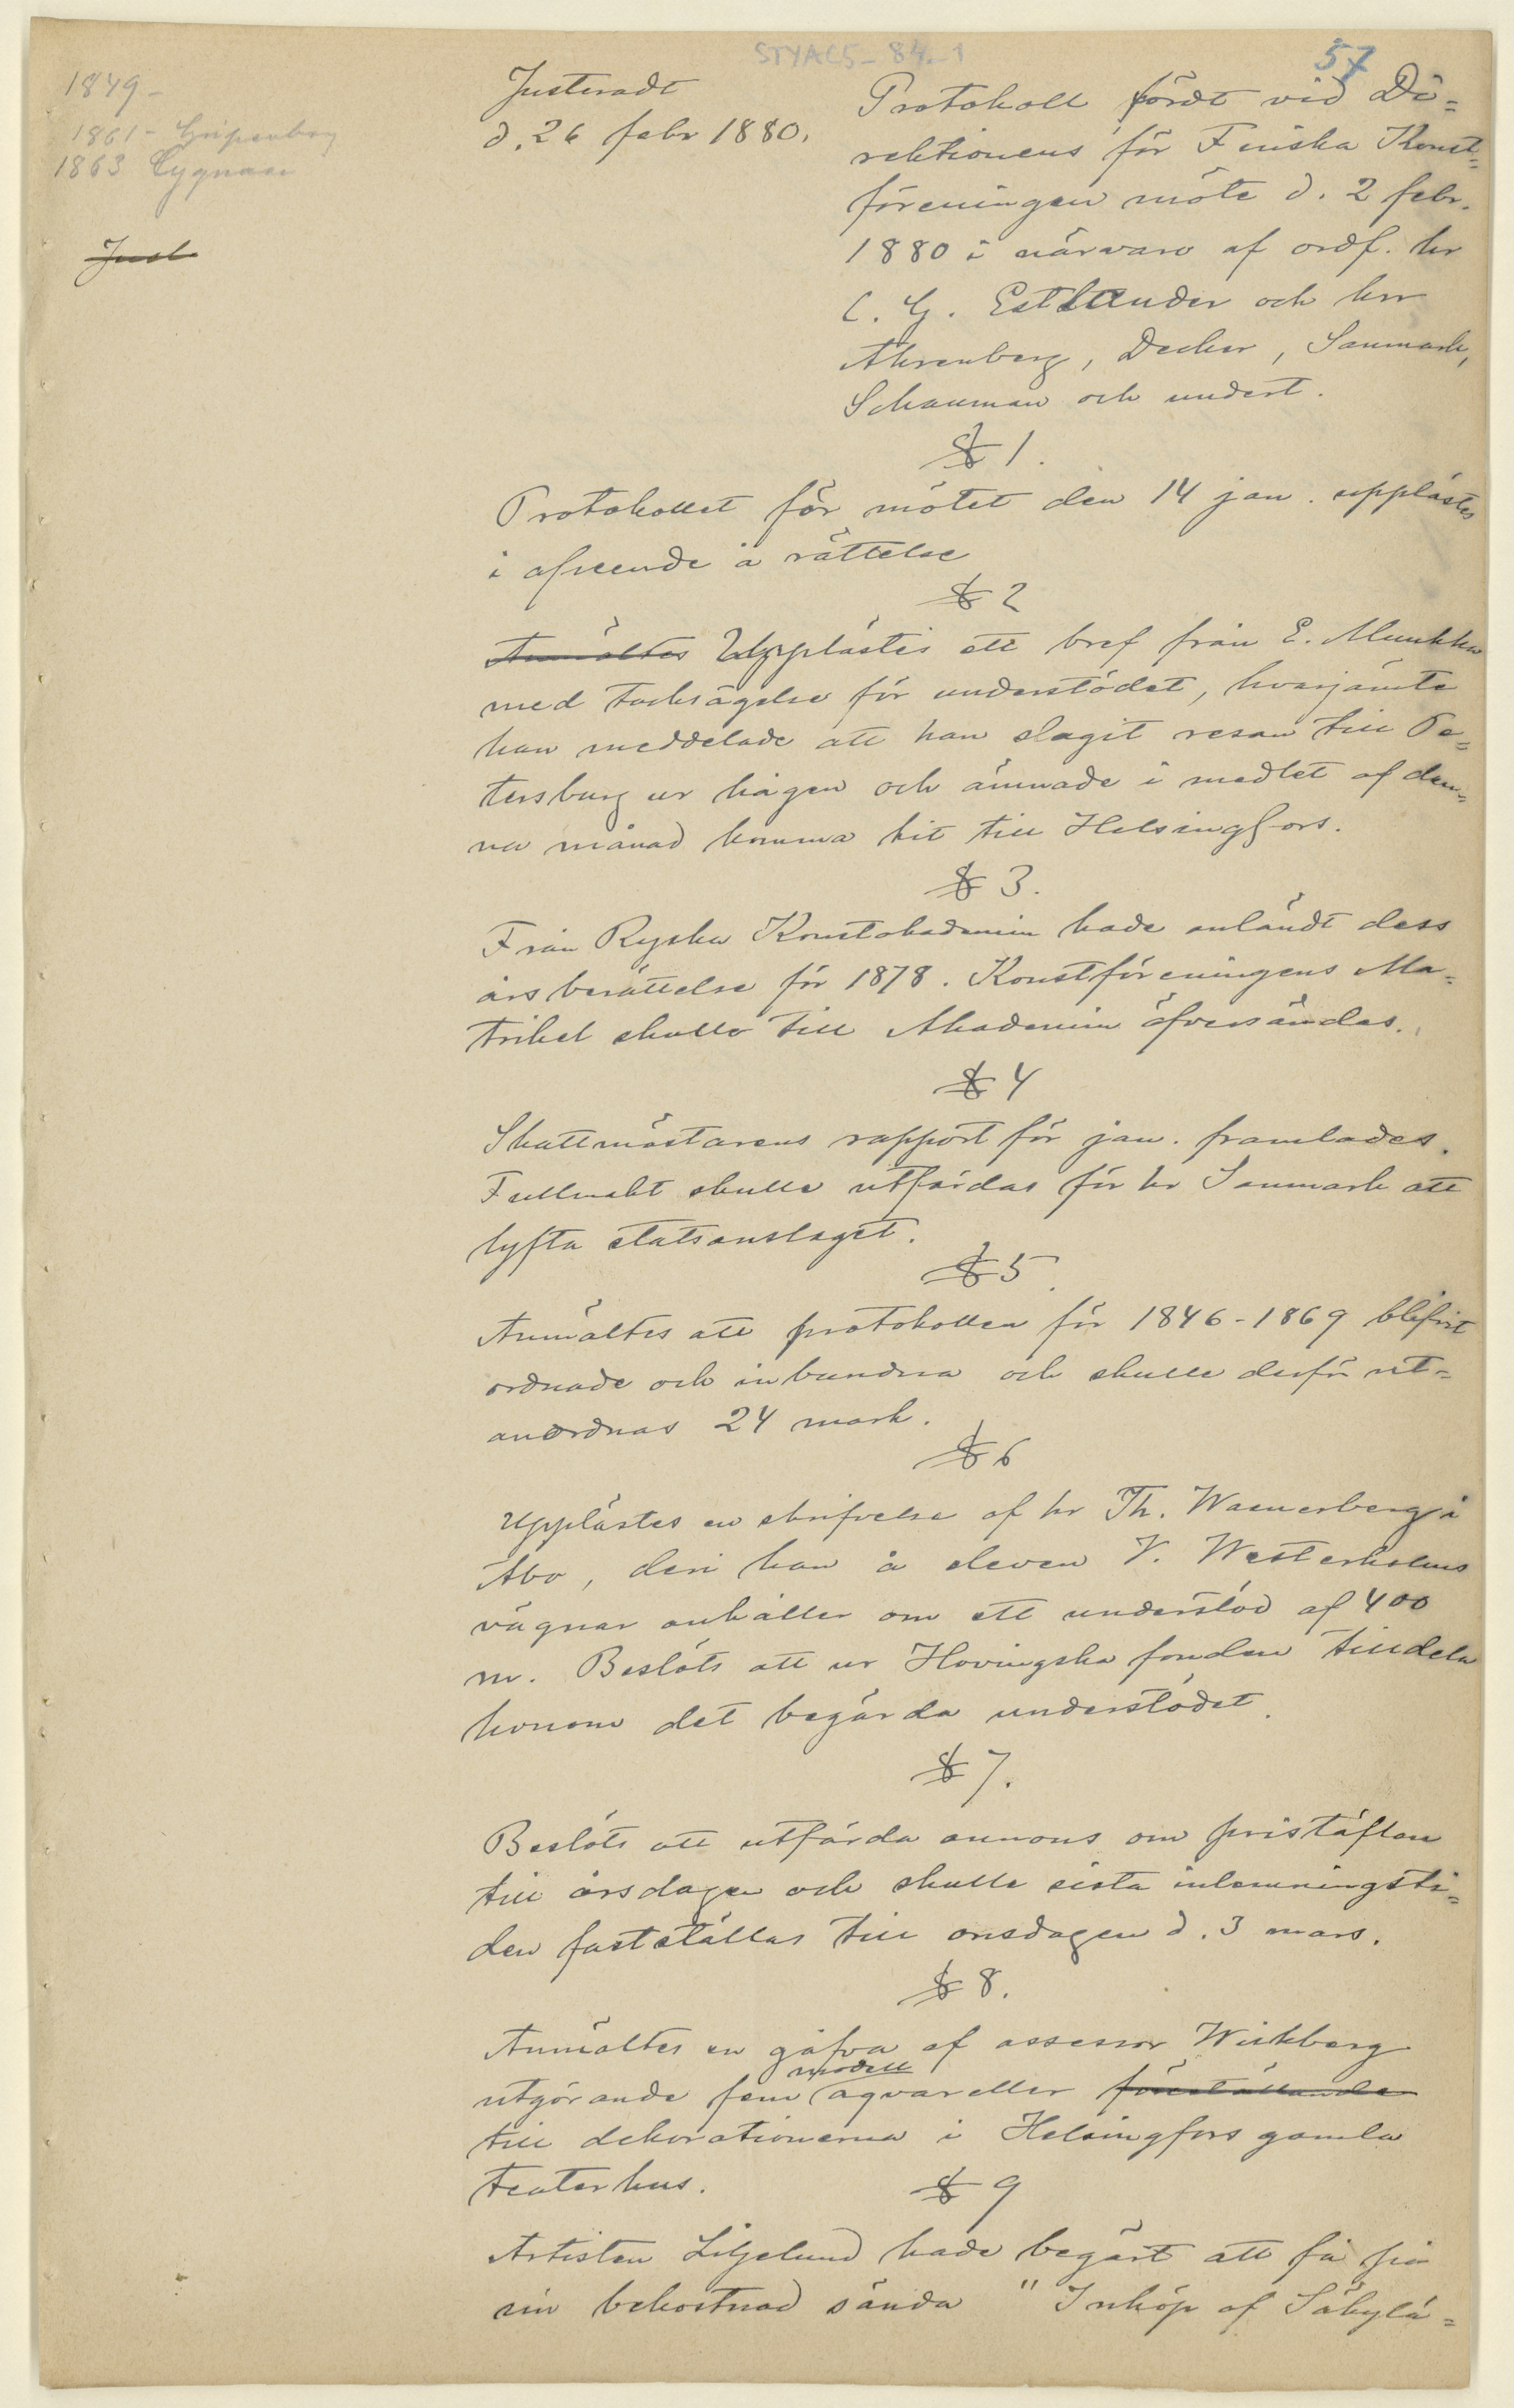 STYAC5-84-1
57
1849-
1861- Gripenberg
1863 Cygnaeus
Just
Justeradt
d. 26 febr 1880.
Protokoll fördt vid Di-
rektionens för Finska Konst-
föreningen möte d. 2 febr.
1880 i närvaro af ordf. hr
C. G. Estlander och hrr
Ahrenberg, Decker, Sanmark,
Schauman och undert.
§ 1.
Protokollet för mötet den 14 jan. upplästes
i afseende å rättelse
§ 2
Anmältes Upplästes ett bref från E. Munkka
med tacksägelse för understödet, hvarjämte
han meddelade att han slagit resan till Pe-
tersburg ur hågen och ämnade i medlet af den-
na månad komma hit till Helsingfors.
§ 3.
Från Ryska Konstakademin hade anländt dess
årsberättelse för 1878. Konstföreningens Ma-
trikel skulle till Akademin öfversändas.
§ 4
Skattmästarens rapport för jan. framlades.
Fullmakt skulle utfärdas för hr Sanmark att
lyfta statsanslaget.
§ 5.
Anmältes att protokollen för 1846-1869 blifvit
ordnade och inbundna och skulle derför ut-
anordnas 24 mark.
§ 6
Upplästes en skrifvelse af hr Th. Waenerberg i
Åbo, deri han å eleven V. Westerholms
vägnar anhåller om ett understöd af 400
m. Beslöts att ur Hovingska fonden tilldela
honom det begärda understödet.
§ 7.
Beslöts att utfärda annons om pristäflan
till årsdagen och skulle sista inlemningsti-
den fastställas till onsdagen d. 3 mars.
§ 8.
Anmältes en gåfva af assessor Wickberg
utgörande fem modell aqvareller föreställande
till dekorationerna i Helsingfors gamla
teaterhus.
§ 9
Artisten Liljelund hade begärt att få på
sin bekostnad sända "Inköp af Säkylä-